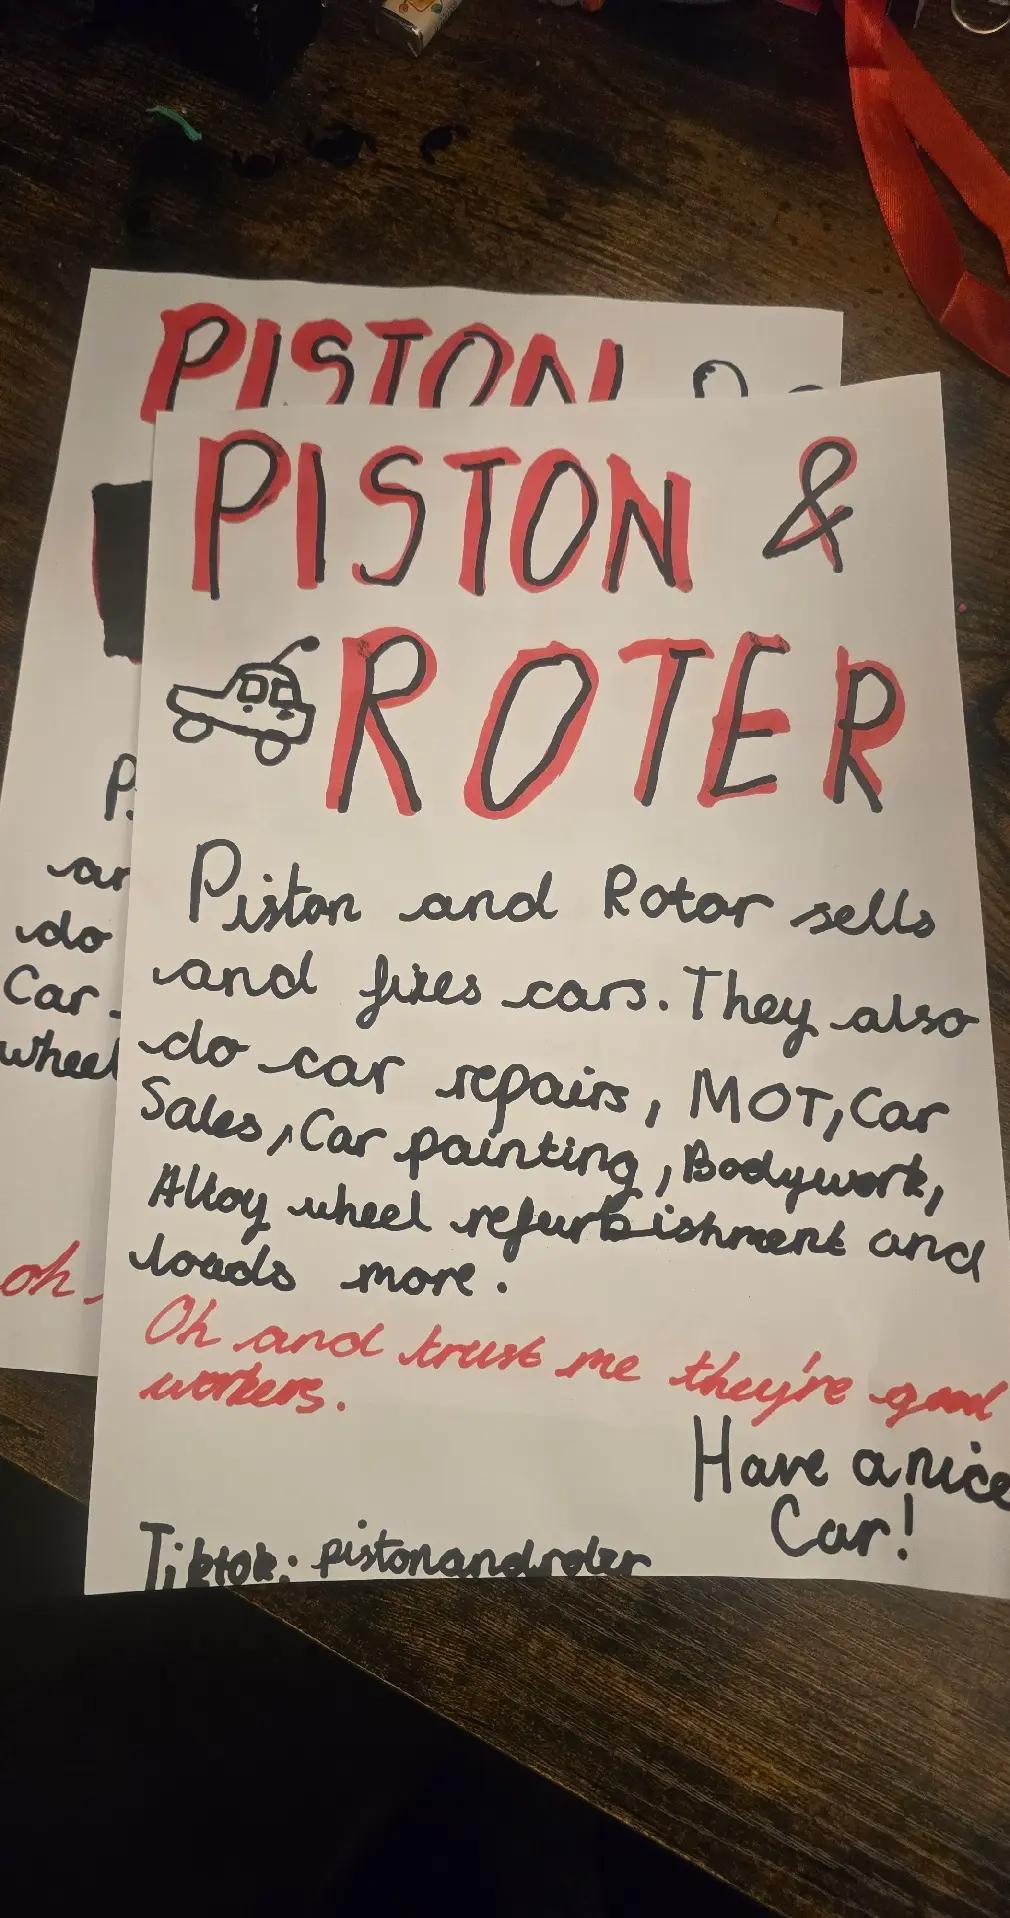 PISTON
PISTON &
ROTER
Piston and Rotor sells
and fixes cars. They also
do car repairs, MOT, Car
Sales, Car painting, Bodywork,
Alloy wheel refurbishment and
loads more.
Oh and trust me they're good
workers.
Have a nice
Car!
Tiktok: pistonandroter
P.
ar
do
Car
wheel
oh